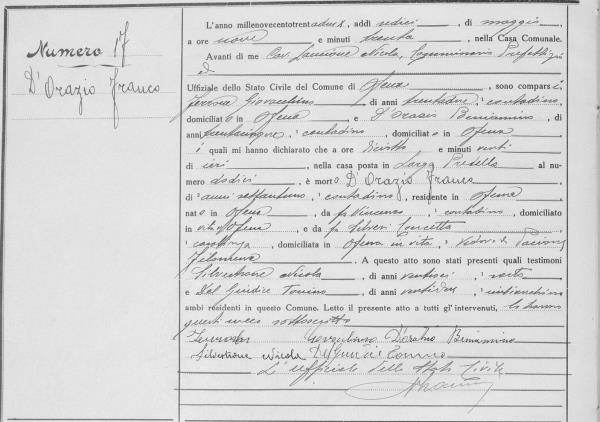 Numero 17
D'Orazio Franco
L'anno millenovecentotrentadue X, addì sedici, di maggio,
a ore nove e minuti trenta, nella Casa Comunale.
Avanti di me Cav. Nicola, Commissario Prefettizio
ed
Uffiziale dello Stato Civile del Comune di Ofena, sono comparsi
Gioacchino di anni trentadue, contadino,
domiciliato in Ofena e D'Orazio Beniamino, di
anni trentacinque, contadino, domiciliato in Ofena
i quali mi hanno dichiarato che a ore diciotto e minuti venti
di ieri, nella casa posta in Largo al nu-
mero dodici, è morto D'Orazio Franco
di anni settantuno, contadino, residente in Ofena
nato in Ofena, da fu Vincenzo, contadino, domiciliato
in vita Ofena e da fu Silveri Concetta
casalinga, domiciliata in Ofena in vita, vedovo di
Filomena. A questo atto sono stati presenti quali testimoni
Silvestrone Nicola, di anni ventisei, sarto
e Del Giudice Tonino, di anni,
ambi residenti in questo Comune. Letto il presente atto a tutti gl'intervenuti, lo hanno
questi meco sottoscritto
D'Orazio Beniamino
Silvestrone Nicola Del Giudice Tonino
L'ufficiale dello Stato Civile